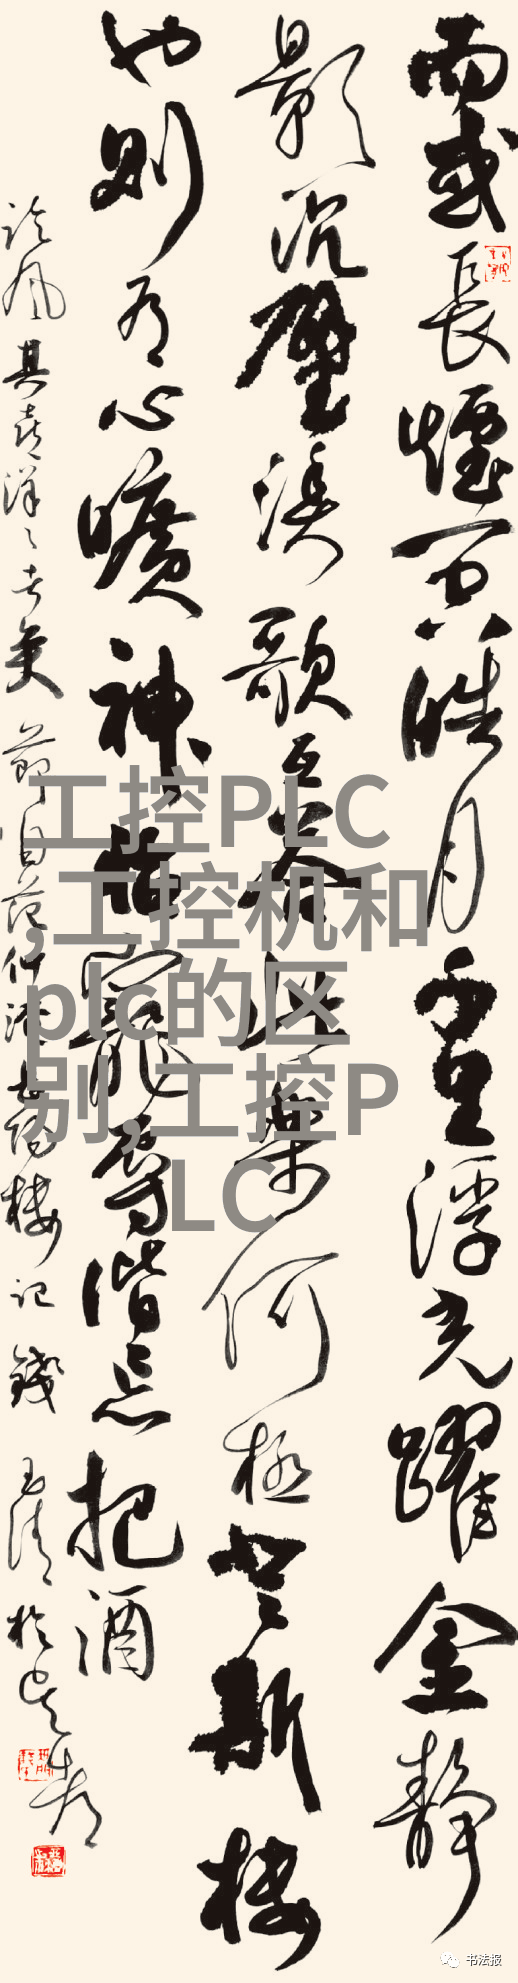 而或長煙一空皓月千里浮光躍金靜
影沉璧漁歌互答此樂何極登斯樓
也則有心曠神怡寵辱偕忘把酒
臨風其喜洋々者矣 節自范仲淹岳陽樓記 錢玉清於
工控PLC
,工控机和
plc的区
别,工控P
LC
书法报